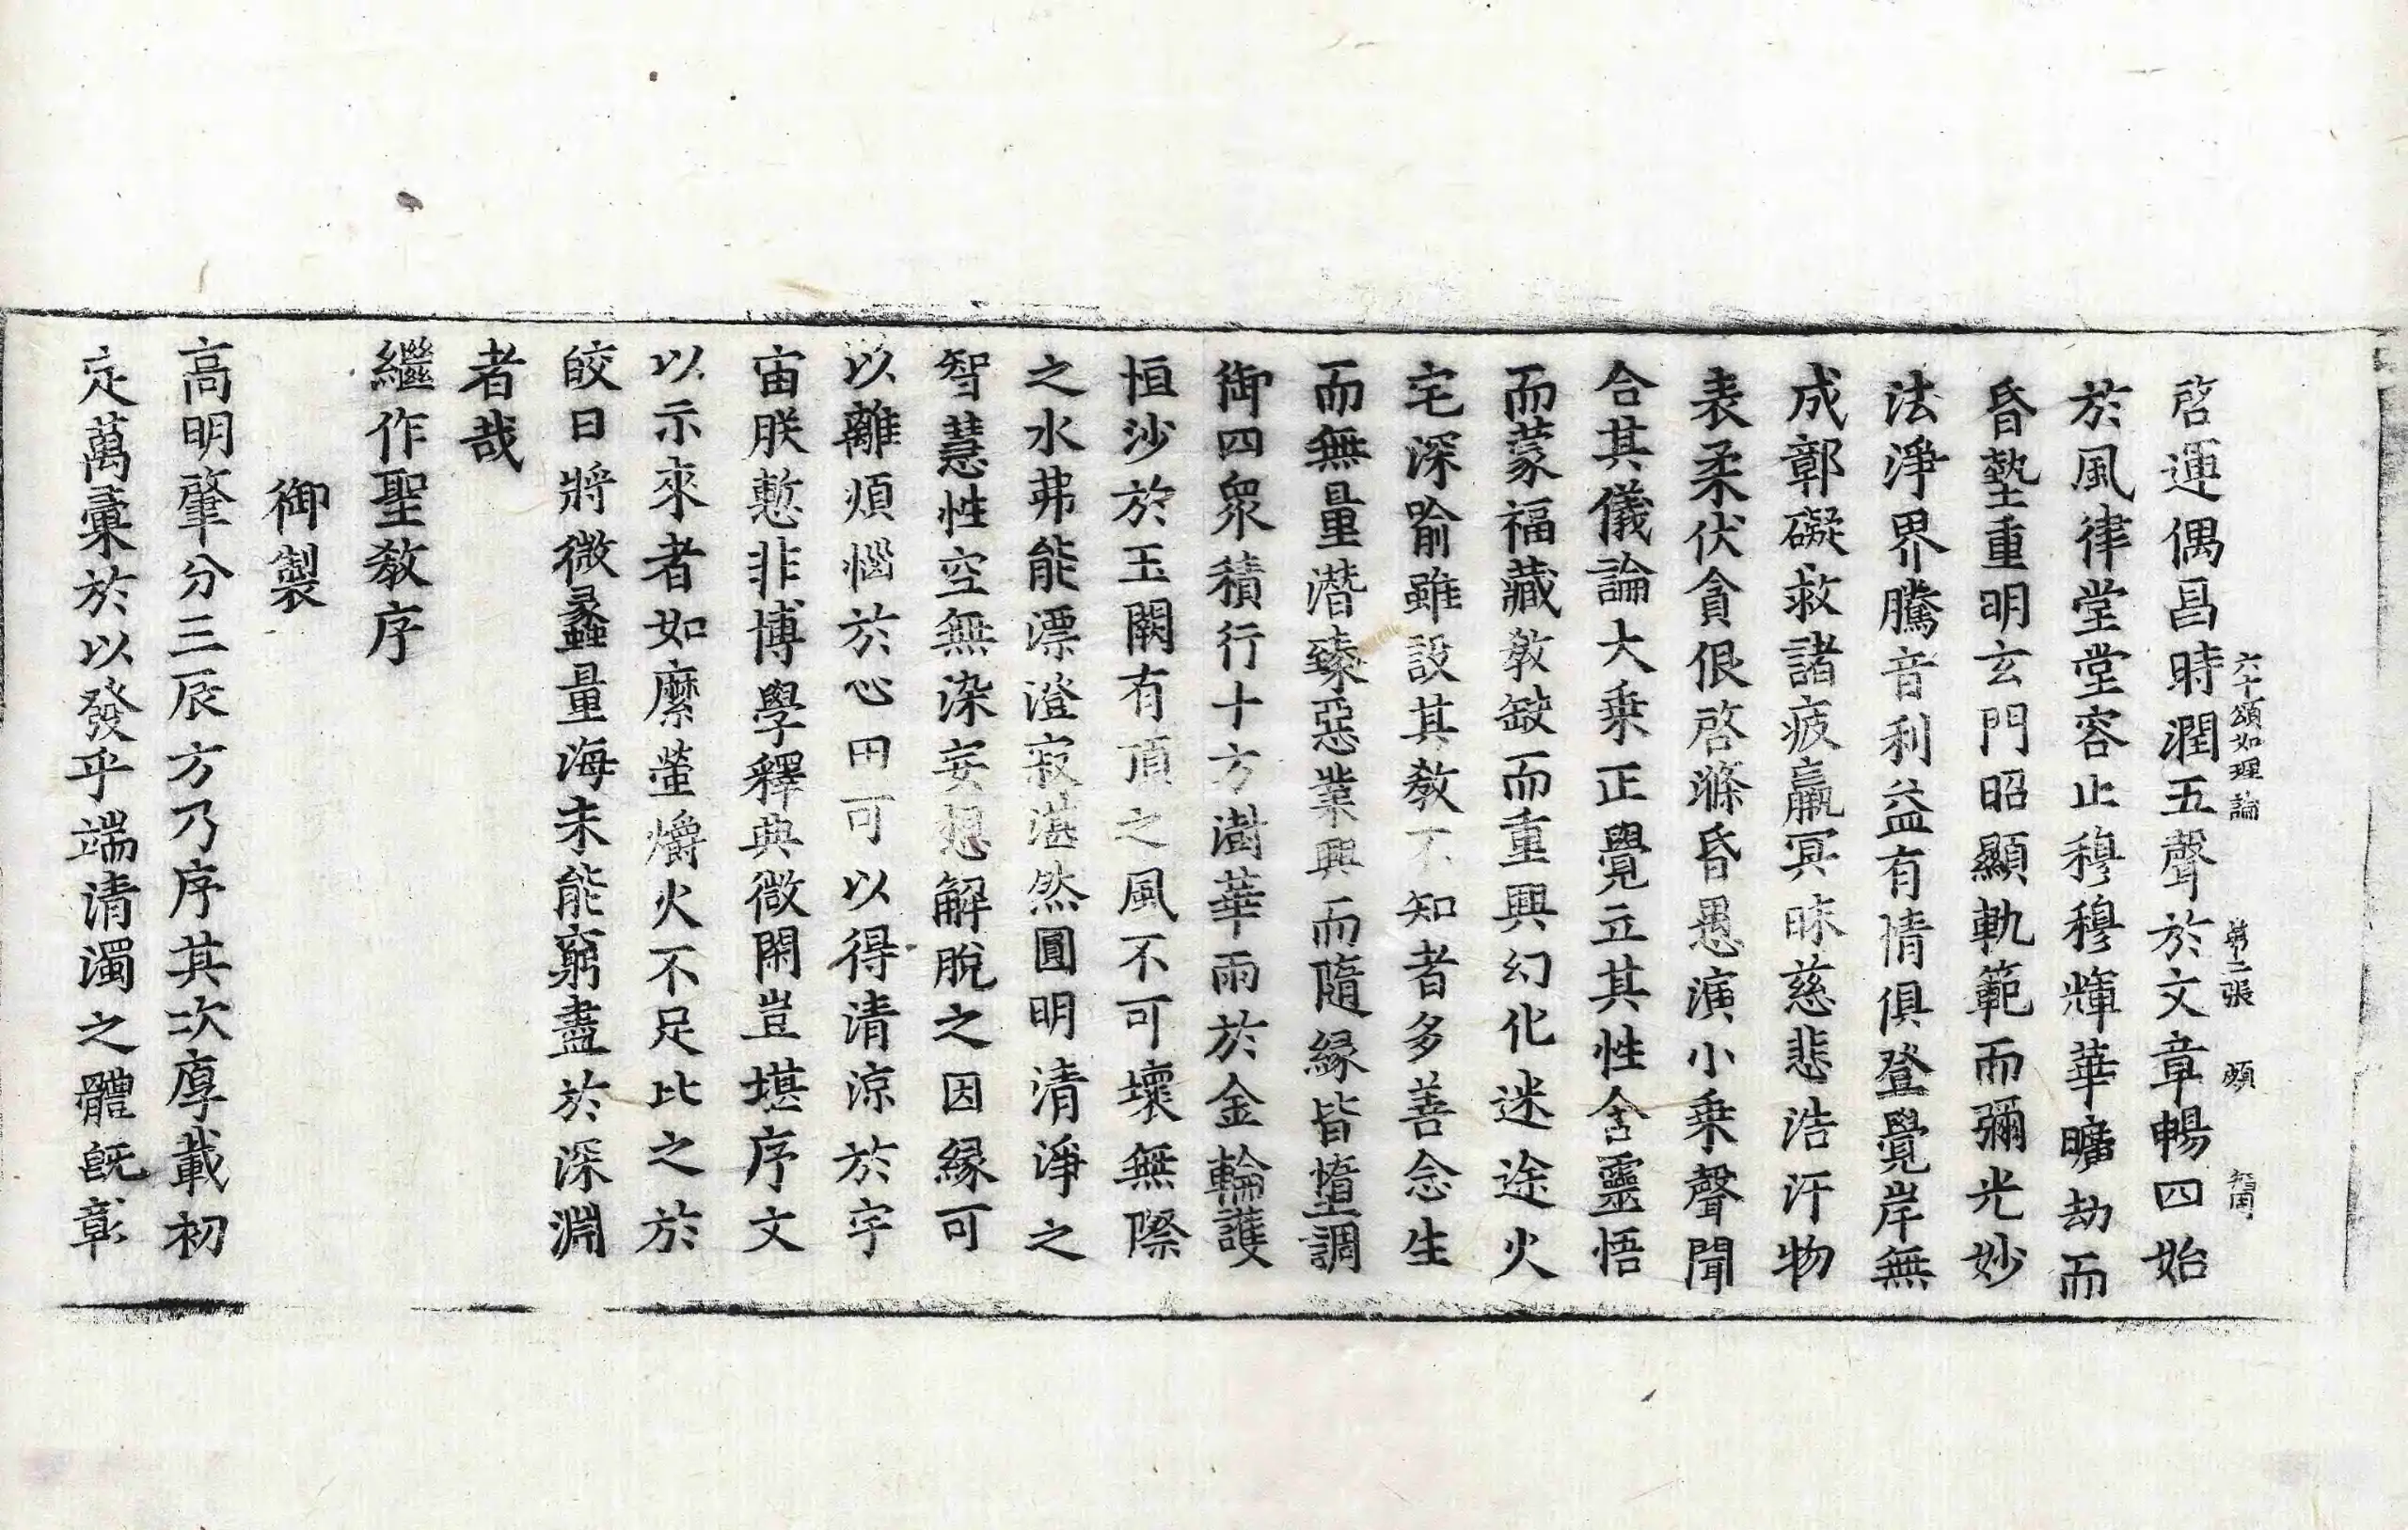 啓運偶昌時潤五聲於文章暢四始
六十頌如理論 第二張 頗
於風律堂堂容止穆穆輝華曠劫而
昏墊重明玄門昭顯軌範而彌光妙
法淨界騰音利益有情俱登覺岸無
成鄣礙救諸疲羸冥昧慈悲浩汗物
表柔伏貪佷啓滌昏愚演小乗聲聞
合其儀論大乗正覺立其性含靈悟
而蒙福藏教缺而重興幻化迷途火
宅深喻雖設其教不知者多善念生
而無量潛臻惡業興而隨緣皆墮調
御四衆積行十方澍華雨於金輪護
恒沙於玉闕有頂之風不可壞無際
之水弗能漂澄寂湛然圓明清淨之
智慧性空無染妄想解脫之因緣可
以離煩惱於心田可以得清涼於宇
宙朕慙非博學釋典微閑豈堪序文
以示來者如縻螢爝火不足比之於
皎日將微蠡量海未能窮盡於深淵
者哉
繼作聖教序
御製
高明肇分三辰方乃序其次厚載初
定萬彙於以發乎端清濁之體旣彰